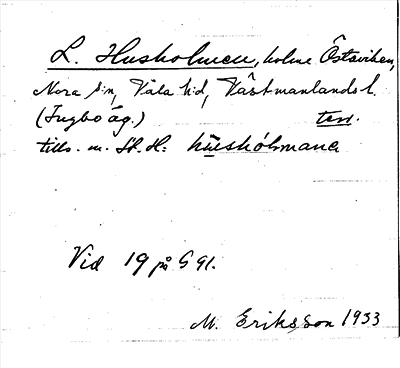 L. Husholmen, holme Östaviken,
Nora sn, Våla hd, Västmanlands l.
(Ingbo äg.) terr.
tills. m. St. H: hùshólmana
Vid 19 på G 91.
M. Eriksson 1933